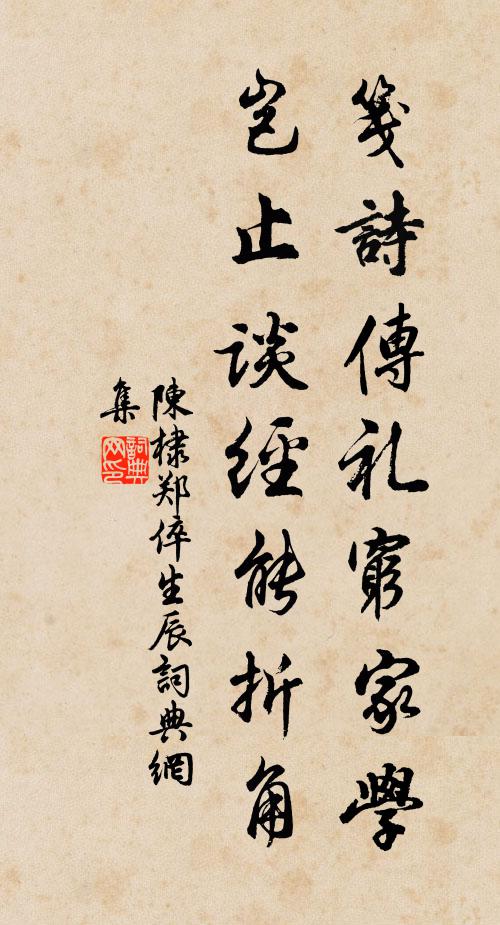 箋詩傳礼窮家學
豈止談經能折角
陳棣郑倅生辰詞典網
集
詞典網印